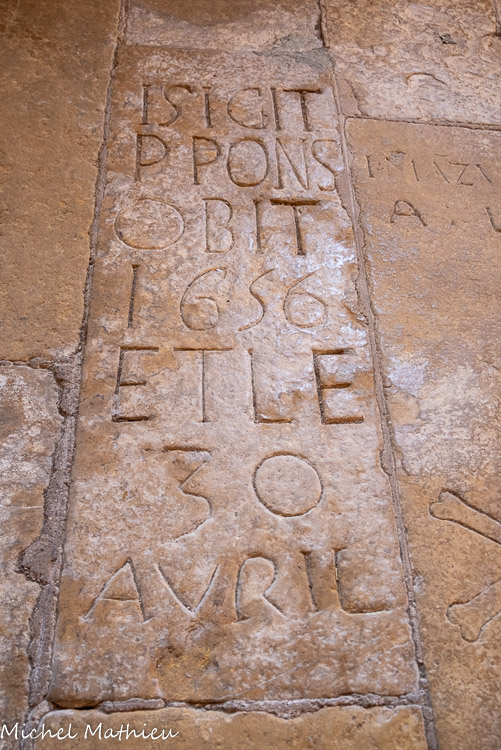 ISIGIT
P PONS
OBIT
1 656
ETLE
30
AVRIL
A . 
Michel Mathieu